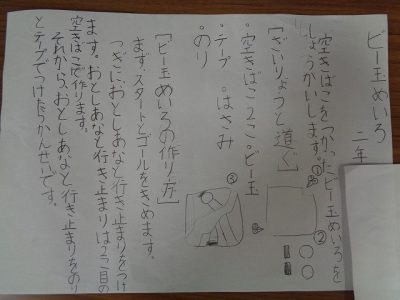 ビー玉めいろ
二年
空きばこをつかったビー玉めいろを
しょうかいします。
①
②
③
[ざいりょうと道ぐ]
・空きばこ2こ・ビー玉
・テープ ・はさみ
・のり
[ビー玉めいろの作り方]
まず、スタートとゴールをきめます。
つぎに、おとしあなと行き止まりをつけ
ます。おとしあなと行き止まりは2こ目の
空きばこで作ります。
それから、おとしあなと行き止まりをのり
とテープでつけたらかんせいです。